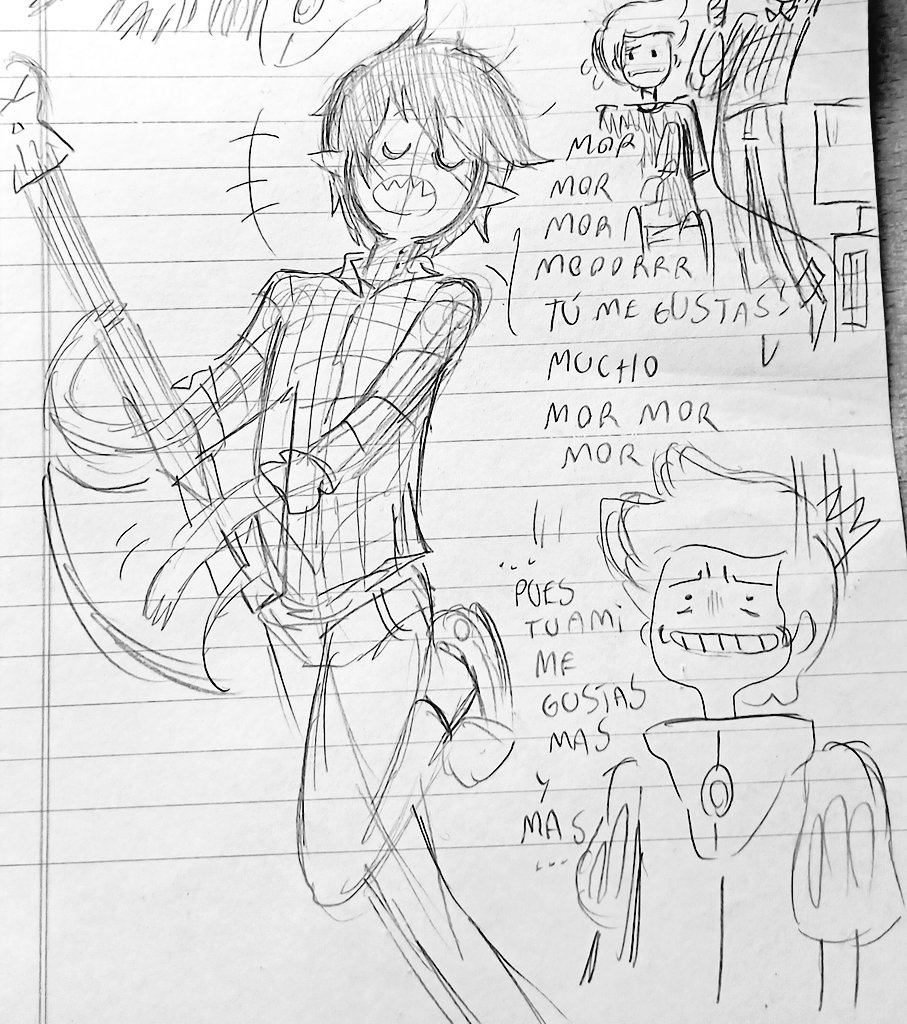 MOR
MOR
MOR
MOOORRR
TÚ ME GUSTAS
MUCHO
MOR MOR
MOR
...
PUES
TU A MI
ME
GUSTAS
MAS
Y
MAS
...